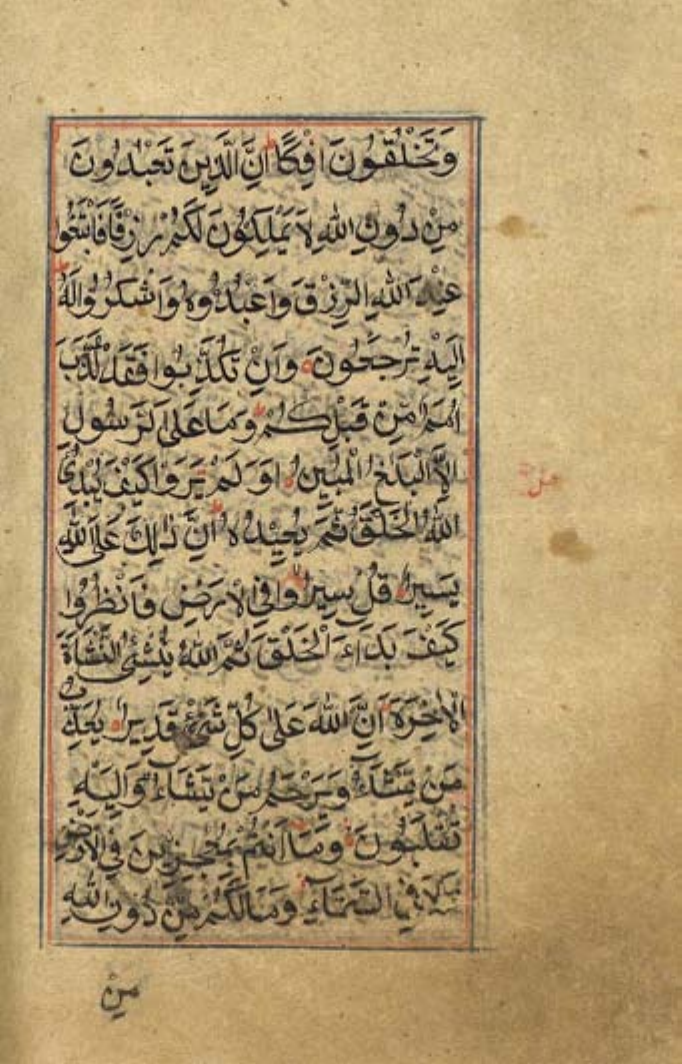 وَتَخْلُقُونَ اِفْكًا اِنَّ الَّذِينَ تَعْبُدُونَ
مِنْ دُونِ اللهِ لَا يَمْلِكُونَ لَكُمْ رِزْقًا فَابْتَغُوا
عِنْدَ اللهِ الرِّزْقَ وَاعْبُدُوهُ وَاشْكُرُوا لَهُ
اِلَيْهِ تُرْجَعُونَ وَاِنْ تُكَذِّبُوا فَقَدْ كَذَّبَ
اُمَمٌ مِّنْ قَبْلِكُمْ وَمَا عَلَى الرَّسُولِ
اِلَّا الْبَلٰغُ الْمُبِينُ اَوَلَمْ يَرَوْا كَيْفَ يُبْدِئُ
اللهُ الْخَلْقَ ثُمَّ يُعِيْدُهُ اِنَّ ذٰلِكَ عَلَى اللهِ
يَسِيرٌ قُلْ سِيرُوا فِي الْاَرْضِ فَانْظُرُوا
كَيْفَ بَدَاءَ الْخَلْقَ ثُمَّ اللهُ يُنْشِئُ النَّشْاَةَ
الْاٰخِرَةَ اِنَّ اللهَ عَلٰى كُلِّ شَيْءٍ قَدِيرٌ يُعَذِّبُ
مَنْ يَّشَآءُ وَيَرْحَمُ مَنْ يَّشَآءُ وَاِلَيْهِ
تُقْلَبُونَ وَمَا اَنْتُمْ بِمُعْجِزِينَ فِي الْاَرْضِ
وَلَا فِي السَّمَآءِ وَمَا لَكُمْ مِّنْ دُونِ اللهِ
مِنْ